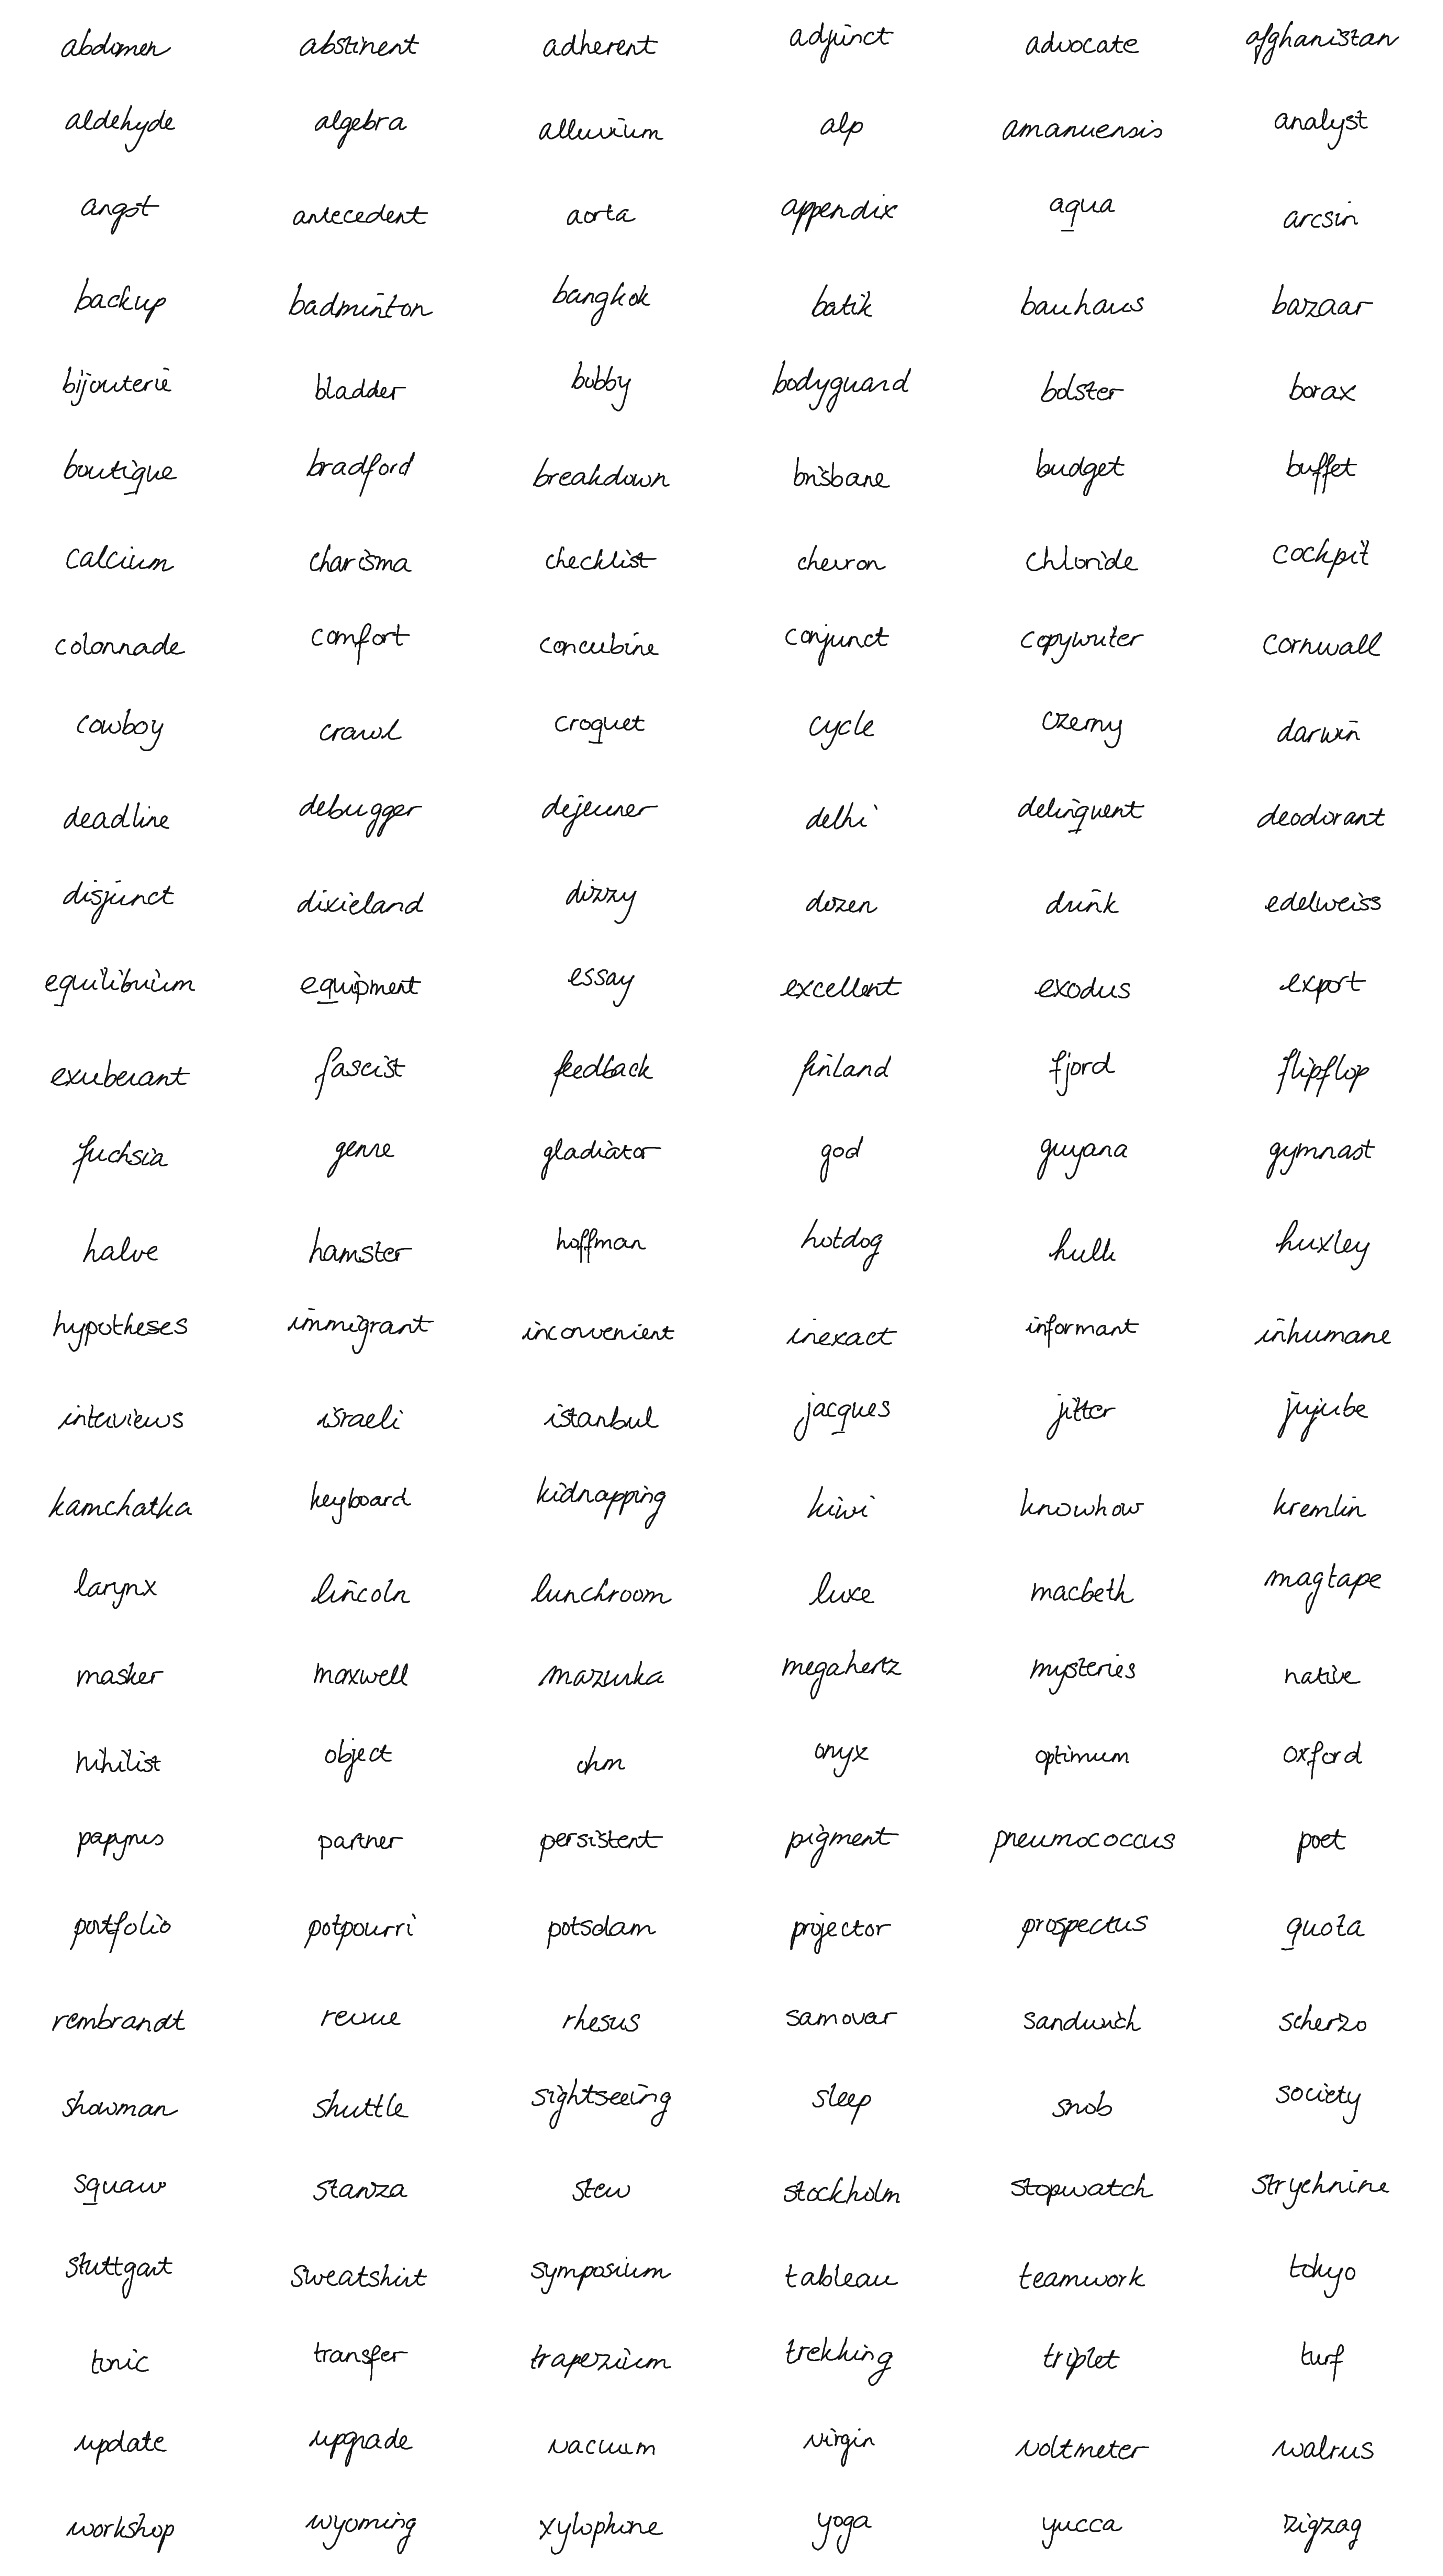 abdomen abstinent adherent adjunct advocate afghanistan
aldehyde algebra alluvium alp amanuensis analyst
angst antecedent aorta appendix aqua arcsin
backup badminton bangkok batik bauhaus bazaar
bijouterie bladder bobby bodyguard bolster borax
boutique bradford breakdown brisbane budget buffet
calcium charisma checklist chevron chloride cockpit
colonnade comfort concubine conjunct copywriter cornwall
cowboy crawl croquet cycle czerny darwin
deadline debugger dejeuner delhi delinquent deodorant
disjunct dixieland dizzy dozen drunk edelweiss
equilibrium equipment essay excellent exodus export
exuberant fascist feedback finland fjord flipflop
fuchsia genre gladiator god guyana gymnast
halve hamster hoffman hotdog hulk huxley
hypotheses immigrant inconvenient inexact informant inhumane
interviews israeli istanbul jacques jitter jujube
kamchatka keyboard kidnapping kiwi knowhow kremlin
larynx lincoln lunchroom luxe macbeth magtape
masker maxwell mazurka megahertz mysteries native
nihilist object ohm onyx optimum oxford
papyrus partner persistent pigment pneumococcus poet
portfolio potpourri potsdam projector prospectus quota
rembrandt revue rhesus samovar sandwich scherzo
showman shuttle sightseeing sleep snob society
squaw stanza stew stockholm stopwatch strychnine
stuttgart sweatshirt symposium tableau teamwork tokyo
tonic transfer trapezium trekking triplet turf
update upgrade vacuum virgin voltmeter walrus
workshop wyoming xylophone yoga yucca zigzag